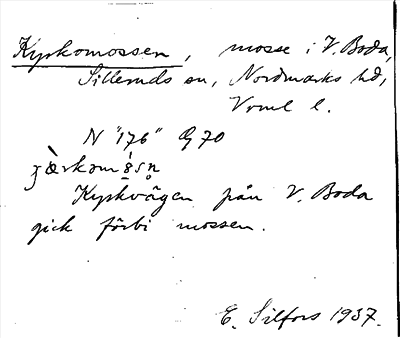 Kyrkomossen, mosse i V. Boda,
Silleruds sn, Nordmarks hd,
Vrml l.
N "176" G 70
Kyrkvägen från V. Boda
gick förbi mossen.
E. Silfors 1937.